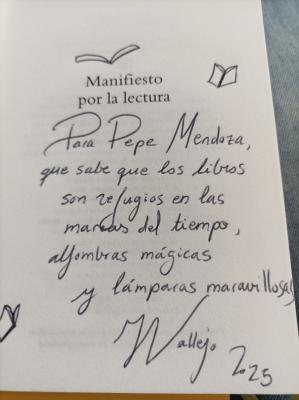 Manifiesto
por la lectura
Para Pepe Mendoza,
que sabe que los libros
son refugios en las
mareas del tiempo,
alfombras mágicas
y lámparas maravillosas
Vallejo 2025